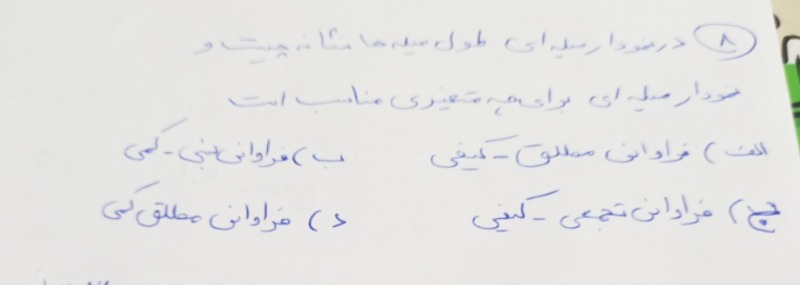 ۸) در نمودار میله ای طول میله ها نشانه چیست و
نمودار میله ای برای چه متغیری مناسب است
الف) فراوانی مطلق - کیفی ب) فراوانی نسبی - کمی
ج) فراوانی تجمعی - کیفی د) فراوانی مطلق کمی